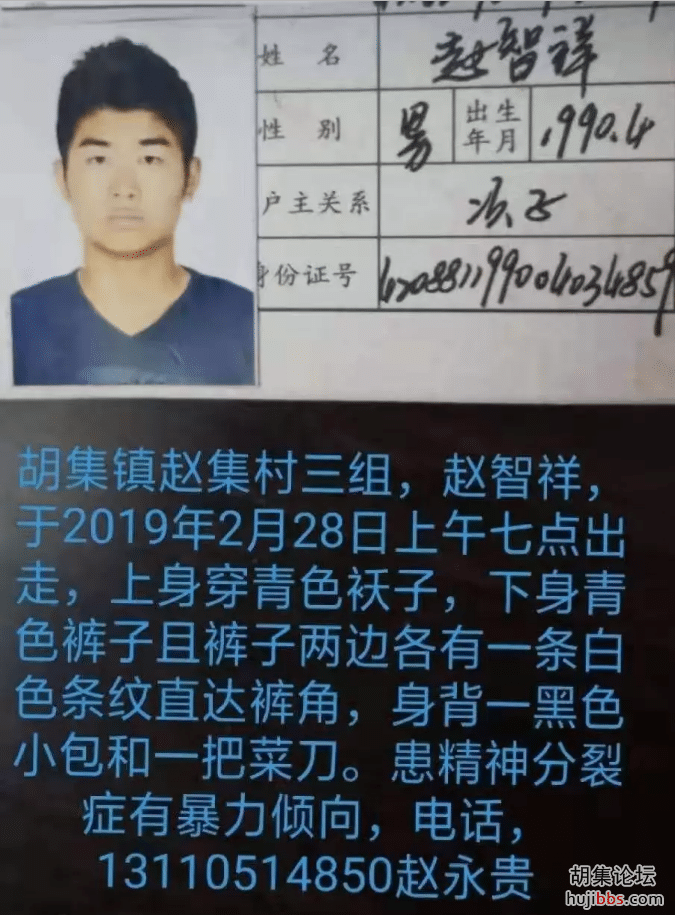 姓 名 赵智祥
性 别 男 出生年月 1990.4
户主关系 次子
身份证号 420881199004034859
胡集镇赵集村三组，赵智祥，
于2019年2月28日上午七点出
走，上身穿青色袄子，下身青
色裤子且裤子两边各有一条白
色条纹直达裤角，身背一黑色
小包和一把菜刀。患精神分裂
症有暴力倾向，电话，
13110514850赵永贵
胡集论坛
hujibbs.com